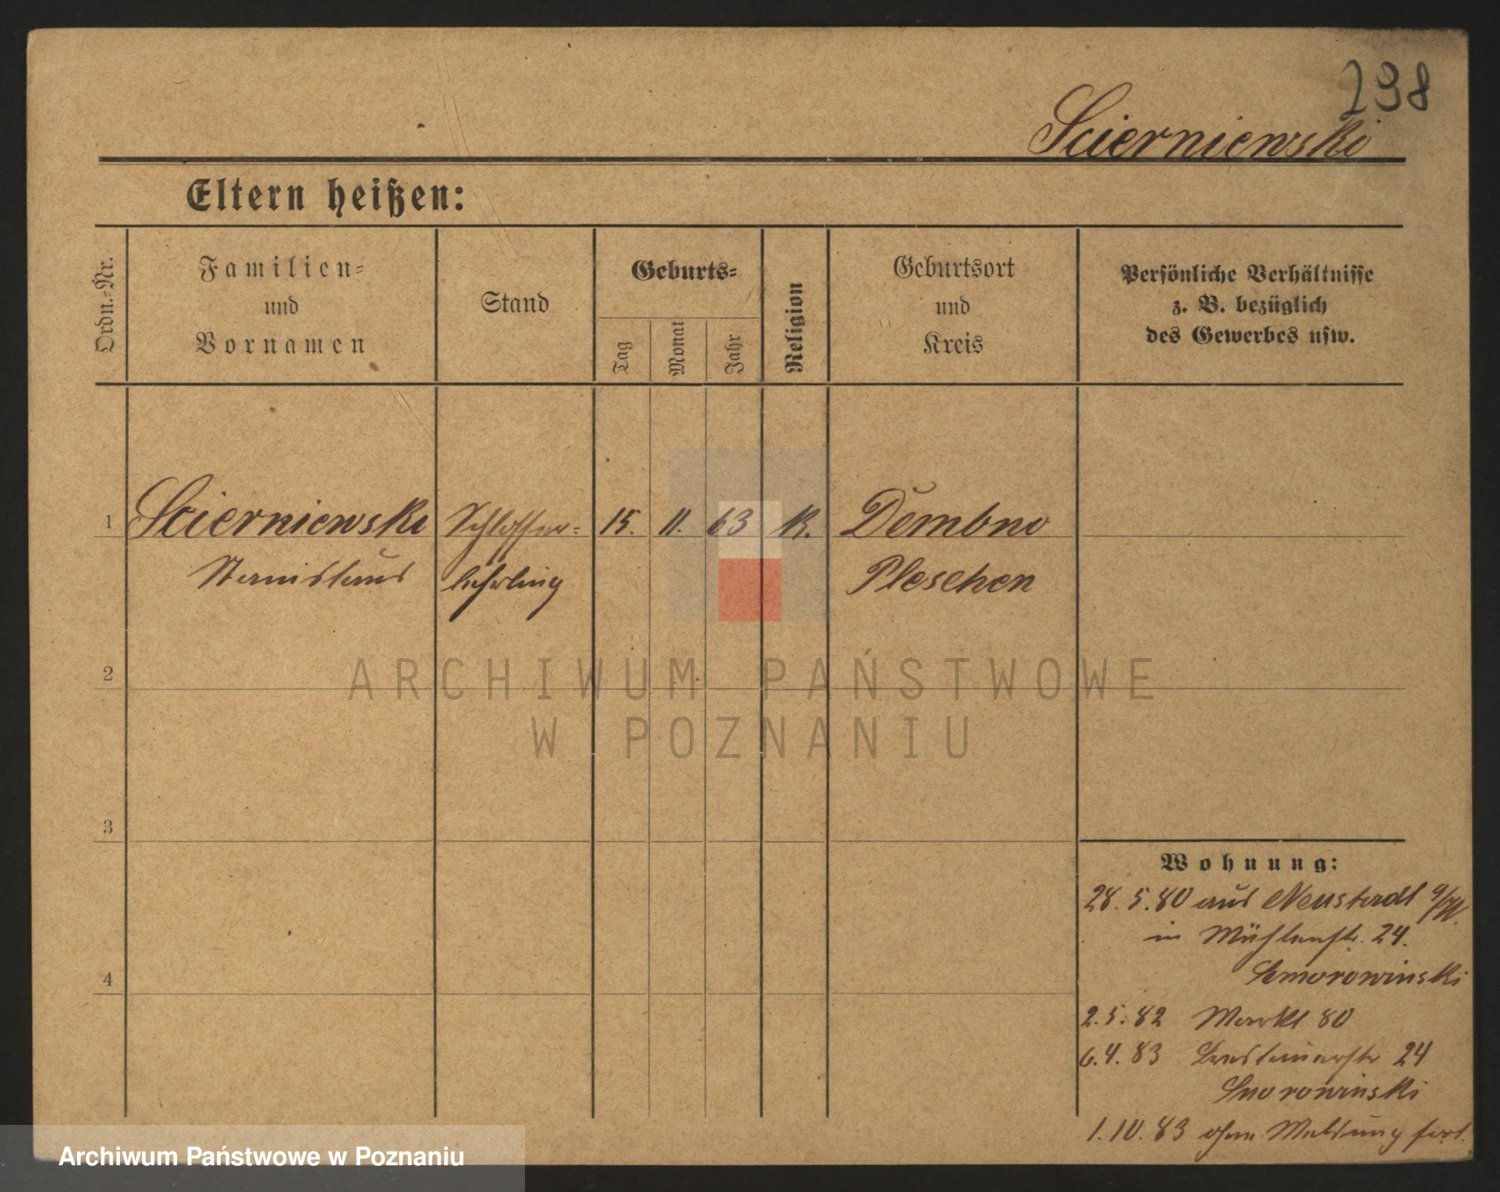 238
Scierniewski
Eltern heißen:
Ordn.-Nr.
Familien-
und
Vornamen
Stand
Geburts-
Tag
Monat
Jahr
Religion
Geburtsort
und
Kreis
Persönliche Verhältnisse
z. B. bezüglich
des Gewerbes usw.
1 Scierniewski Schlosser- 15. 11. 63 K. Dembno
Stanislaus lehrling Pleschen
2
3
4
Wohnung:
28. 5. 80 aus Neustadt a/W.
in Mühlenstr. 24.
Smorowinski
2. 5. 82 Markt 80
6. 4. 83 24
Smorowinski
1. 10. 83 ohne Meldung fort.
ARCHIWUM PAŃSTWOWE
W POZNANIU
Archiwum Państwowe w Poznaniu